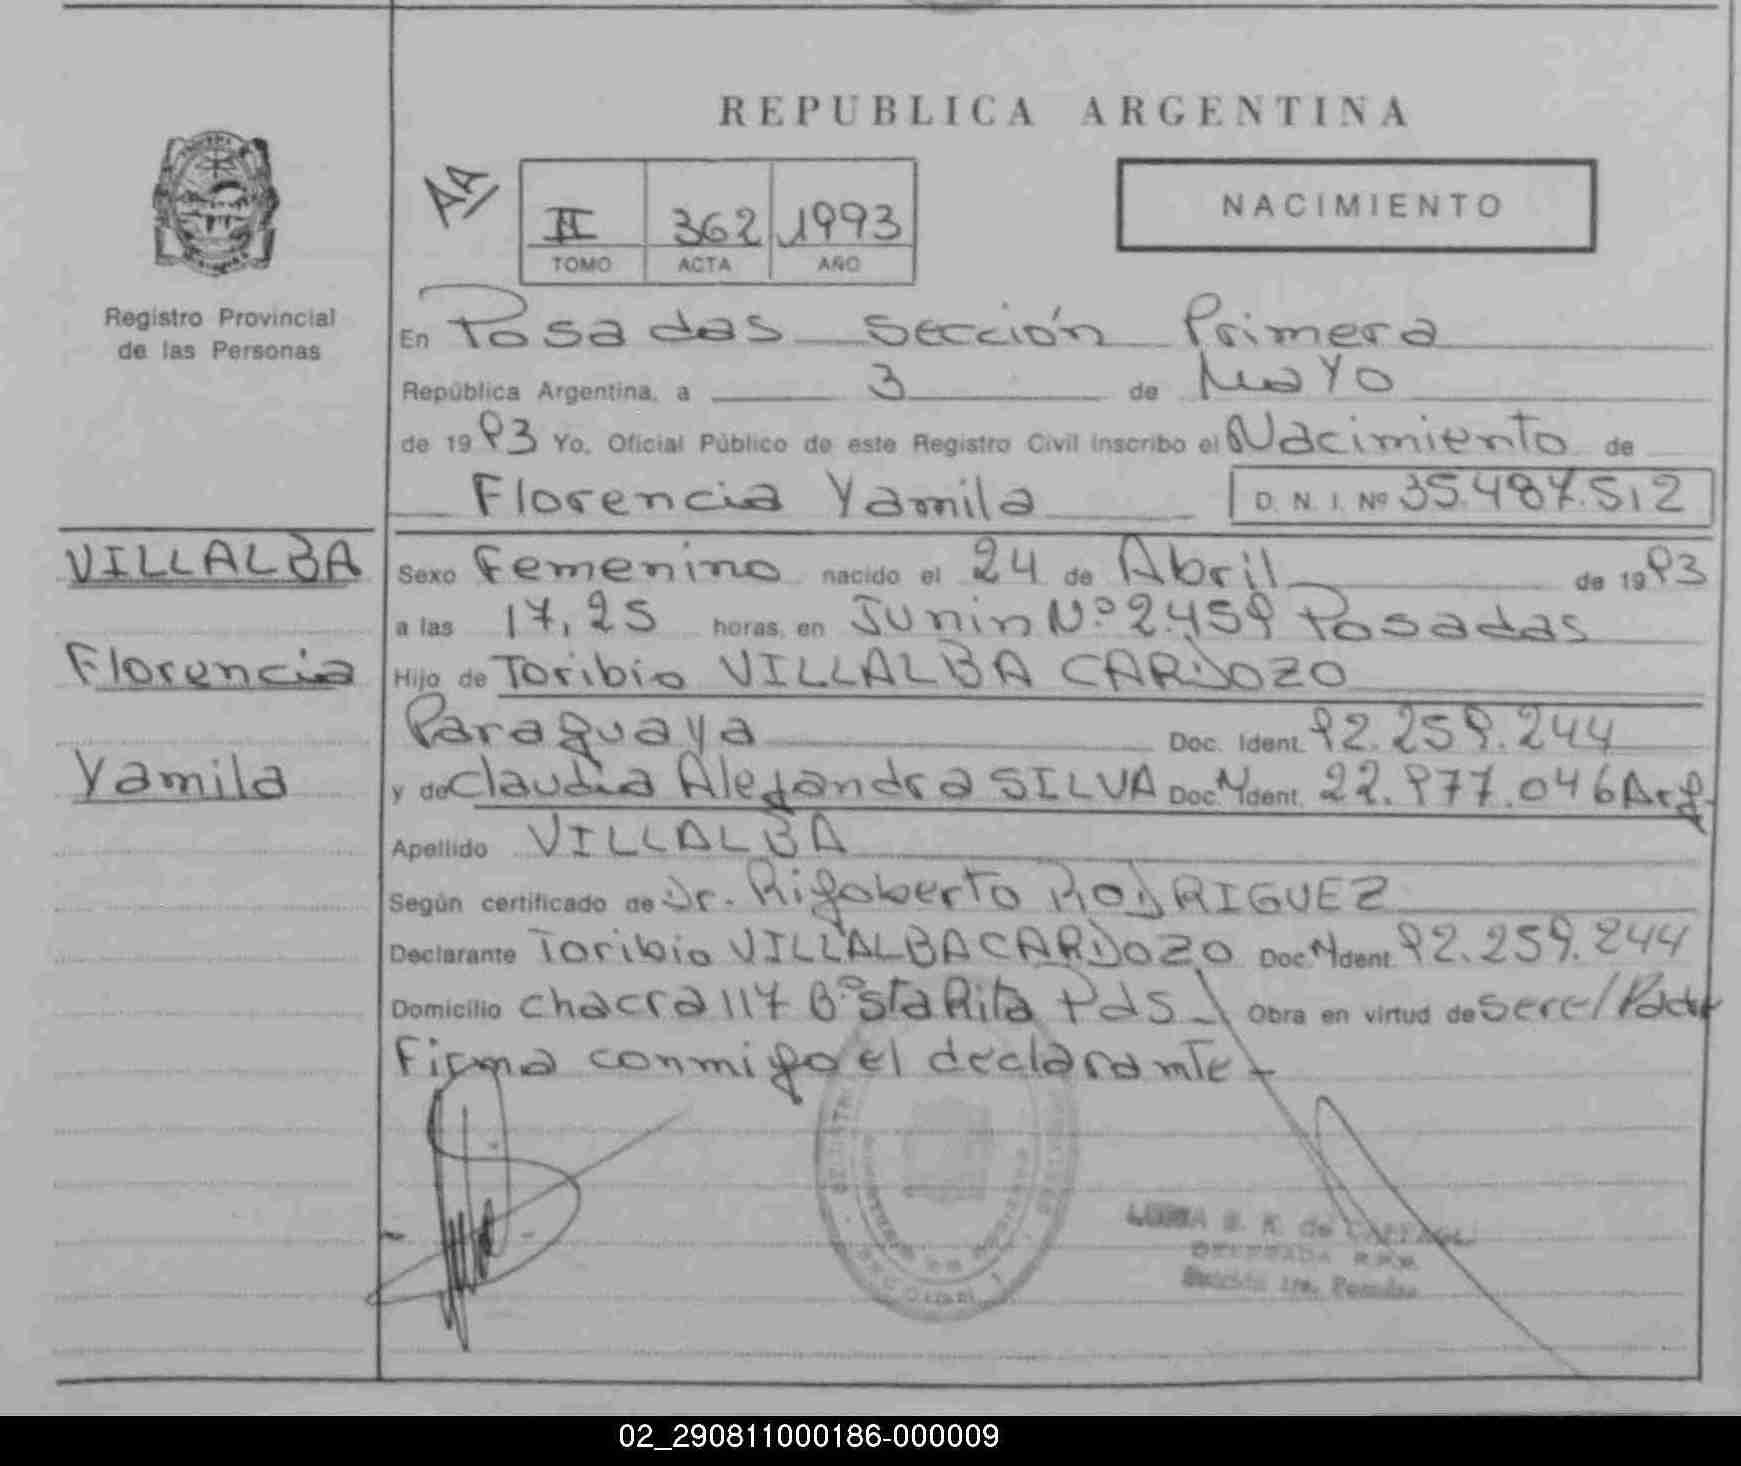 REPUBLICA ARGENTINA
AA
II 362 1993
TOMO ACTA AÑO
NACIMIENTO
Registro Provincial
de las Personas
En Posadas Sección Primera
República Argentina, a 3 de Mayo
de 1993 Yo, Oficial Público de este Registro Civil inscribo el Nacimiento de
Florencia Yamila D. N. I. Nº 35.487.512
VILLALBA
Florencia
Yamila
Sexo Femenino nacido el 24 de Abril de 1993
a las 17,25 horas, en Junin Nº 2.459 Posadas
Hijo de Toribio VILLALBA CARDOZO
Paraguaya Doc. Ident. 92.259.244
y de Claudia Alejandra SILVA Doc. Ident. 22.977.046 Arg.
Apellido VILLALBA
Según certificado de Dr. Rigoberto RODRIGUEZ
Declarante Toribio VILLALBA CARDOZO Doc. Ident. 92.259.244
Domicilio chacra 117 Bº Sta Rita Pds Obra en virtud de
Firma conmigo el declarante
02_290811000186-000009